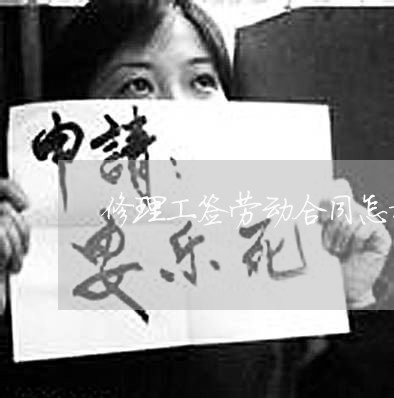 申請：
修理工签劳动合同怎
安乐死